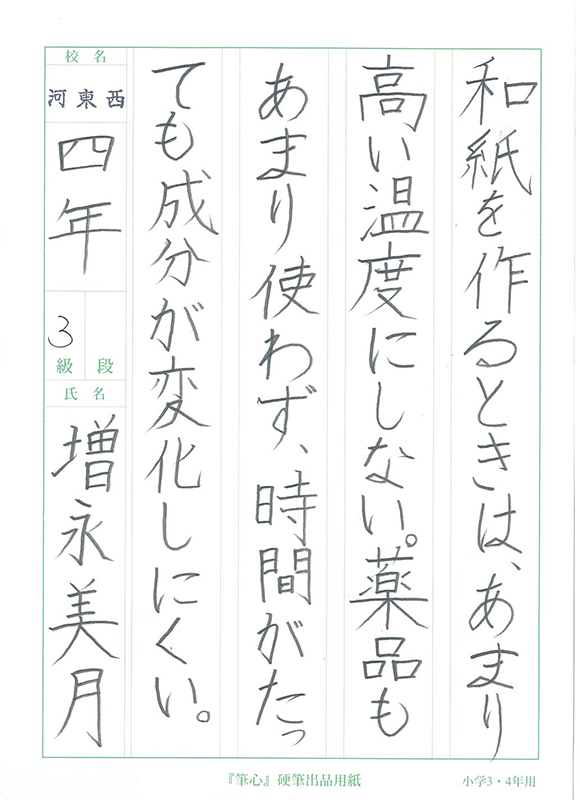 和紙を作るときは、あまり
高い温度にしない。薬品も
あまり使わず、時間がたっ
ても成分が変化しにくい。
校名
河東西
四年
3
級 段
氏名
増永美月
『筆心』硬筆出品用紙
小学3・4年用